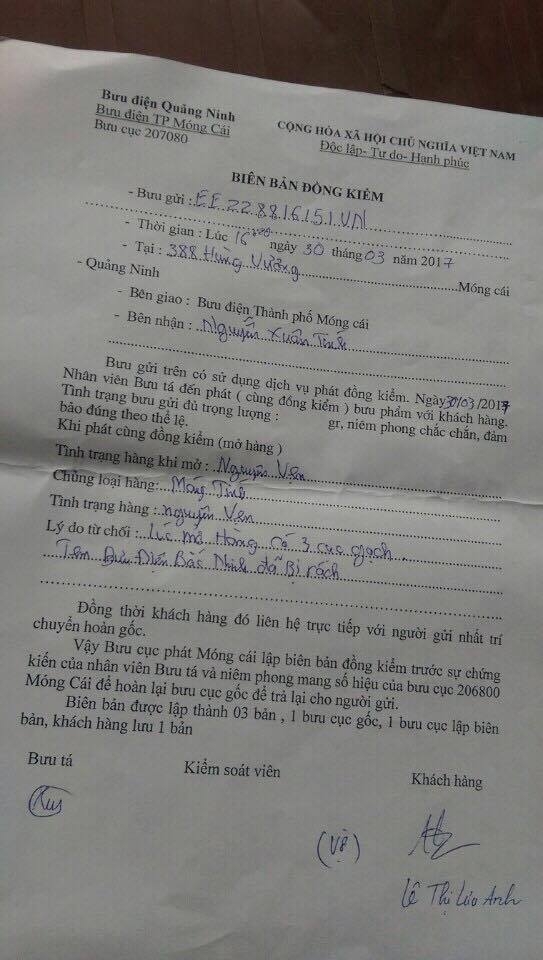 Bưu điện Quảng Ninh
Bưu điện TP Móng Cái
Bưu cục 207080
CỘNG HÒA XÃ HỘI CHỦ NGHĨA VIỆT NAM
Độc lập- Tự do- Hạnh phúc
BIÊN BẢN ĐỒNG KIỂM
- Bưu gửi : EE228816151VN
- Thời gian : Lúc 16 ngày 30 tháng 03 năm 2017
- Tại : 388 Hùng Vương Móng cái
- Quảng Ninh
- Bên giao : Bưu điện Thành phố Móng cái
- Bên nhận : Nguyễn Xuân
Bưu gửi trên có sử dụng dịch vụ phát đồng kiểm. Ngày 30/03/2017
Nhân viên Bưu tá đến phát ( cùng đồng kiểm ) bưu phẩm với khách hàng.
Tình trạng bưu gửi đủ trọng lượng : gr, niêm phong chắc chắn, đảm
bảo đúng theo thể lệ.
Khi phát cùng đồng kiểm (mở hàng )
Tình trạng hàng khi mở : Nguyên Vẹn
Chủng loại hàng: Máy Tính
Tình trạng hàng : nguyên Vẹn
Lý do từ chối : Lúc mở Hàng có 3 cục gạch
Tem Bưu Điện Bắc Ninh đã Bị rách
Đồng thời khách hàng đó liên hệ trực tiếp với người gửi nhất trí
chuyển hoàn gốc.
Vậy Bưu cục phát Móng cái lập biên bản đồng kiểm trước sự chứng
kiến của nhân viên Bưu tá và niêm phong mang số hiệu của bưu cục 206800
Móng Cái để hoàn lại bưu cục gốc để trả lại cho người gửi.
Biên bản được lập thành 03 bản , 1 bưu cục gốc, 1 bưu cục lập biên
bản, khách hàng lưu 1 bản
Bưu tá Kiểm soát viên Khách hàng
(Vợ)
Lê Thị Lựo Anh